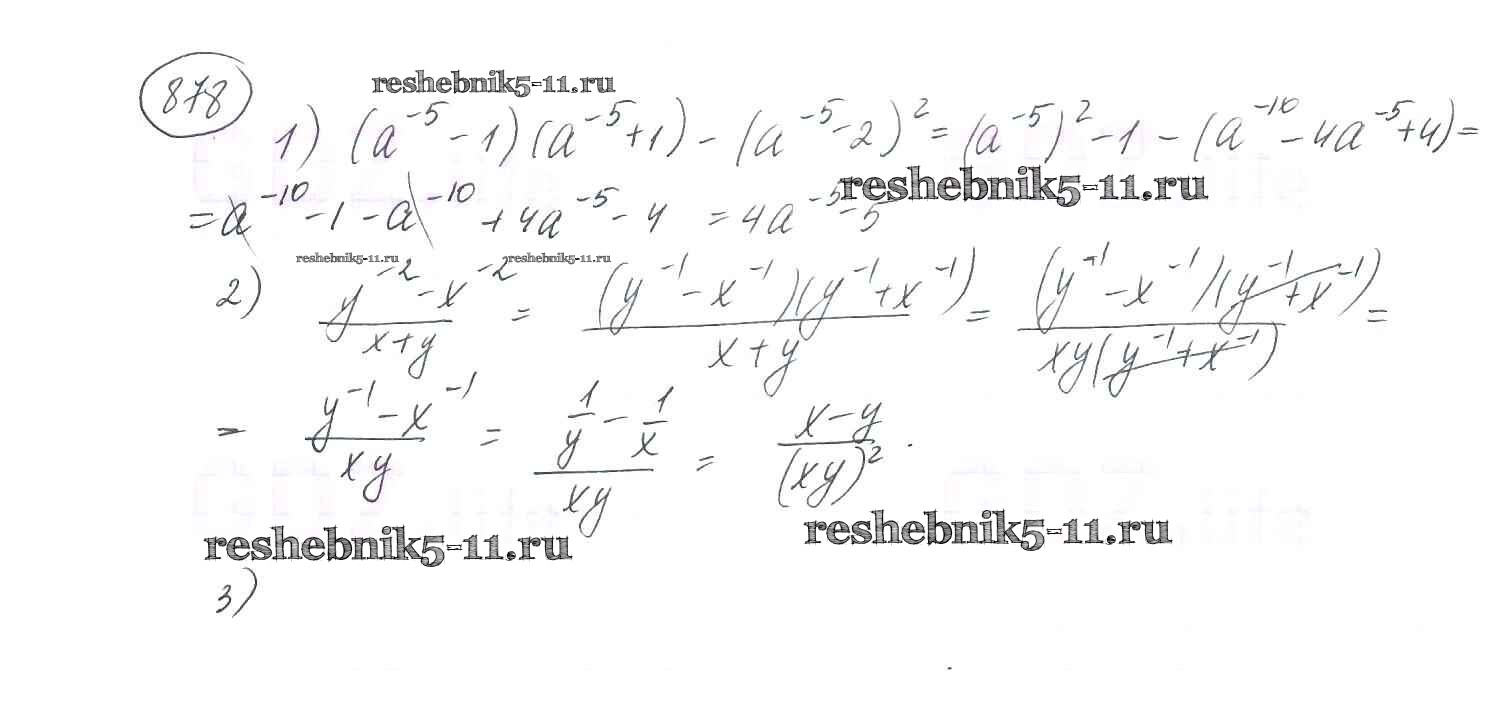 878
reshebnik5-11.ru
1) (a⁻⁵ - 1)(a⁻⁵ + 1) - (a⁻⁵ - 2)² = (a⁻⁵)² - 1 - (a⁻¹⁰ - 4a⁻⁵ + 4) =
reshebnik5-11.ru
= a⁻¹⁰ - 1 - a⁻¹⁰ + 4a⁻⁵ - 4 = 4a⁻⁵ - 5
reshebnik5-11.ru reshebnik5-11.ru
2) (y⁻² - x⁻²)/(x + y) = ((y⁻¹ - x⁻¹)(y⁻¹ + x⁻¹))/(x + y) = ((y⁻¹ - x⁻¹)(y⁻¹ + x⁻¹))/(xy(y⁻¹ + x⁻¹)) =
= (y⁻¹ - x⁻¹)/(xy) = (1/y - 1/x)/(xy) = (x - y)/(xy)².
reshebnik5-11.ru reshebnik5-11.ru
3)